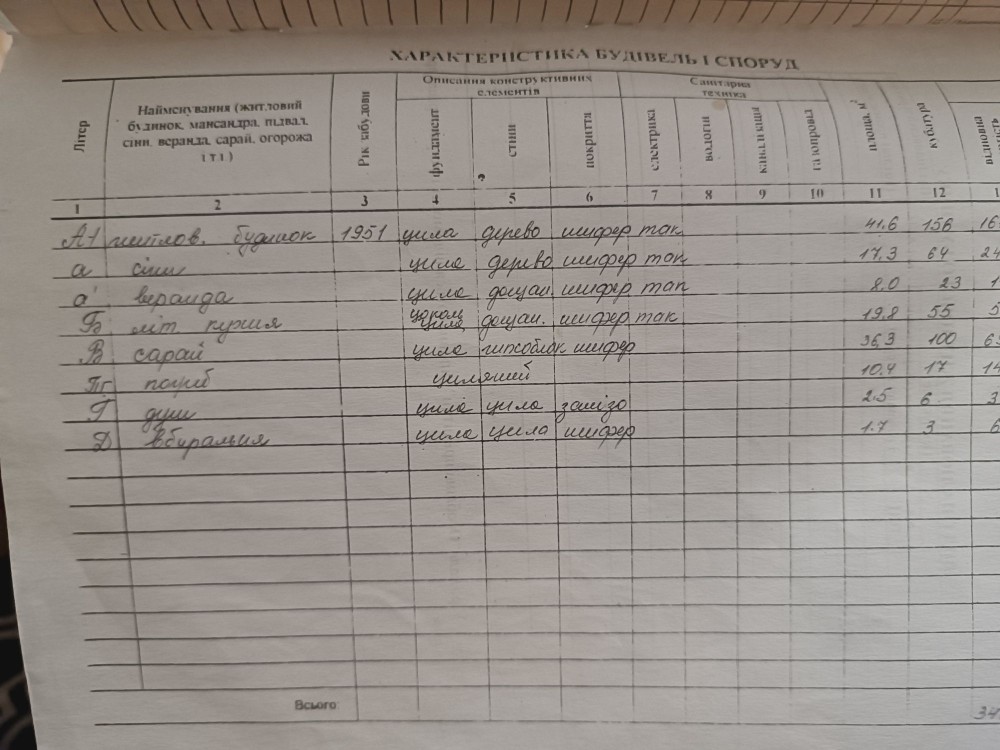 ХАРАКТЕРИСТИКА БУДІВЕЛЬ І СПОРУД
Літер
Найменування (житловий будинок, мансандра, підвал, сіни, веранда, сарай, огорожа і т.і.)
Рік забудови
Описання конструктивних елементів
фундамент
стіни
покриття
Санітарна техніка
електрика
водогін
каналізація
газопровід
площа, м²
кубатура
відновна
1 2 3 4 5 6 7 8 9 10 11 12 1
А1 житлов. будинок 1951 цегла дерево шифер так 41.6 156 16
а сіни цегла дерево шифер так 17.3 64 24
а' веранда цегла дощан. шифер так 8.0 23 1
Б літ. кухня цоколь цегла дощан. шифер так 19.8 55 5
В сарай цегла гипсоблок шифер 36,3 100 6
Пг погріб цегляний 10.4 17 14
Г душ цегла цегла залізо 2.5 6 3
Д вбиральня цегла цегла шифер 1.7 3 6
Всього: 34